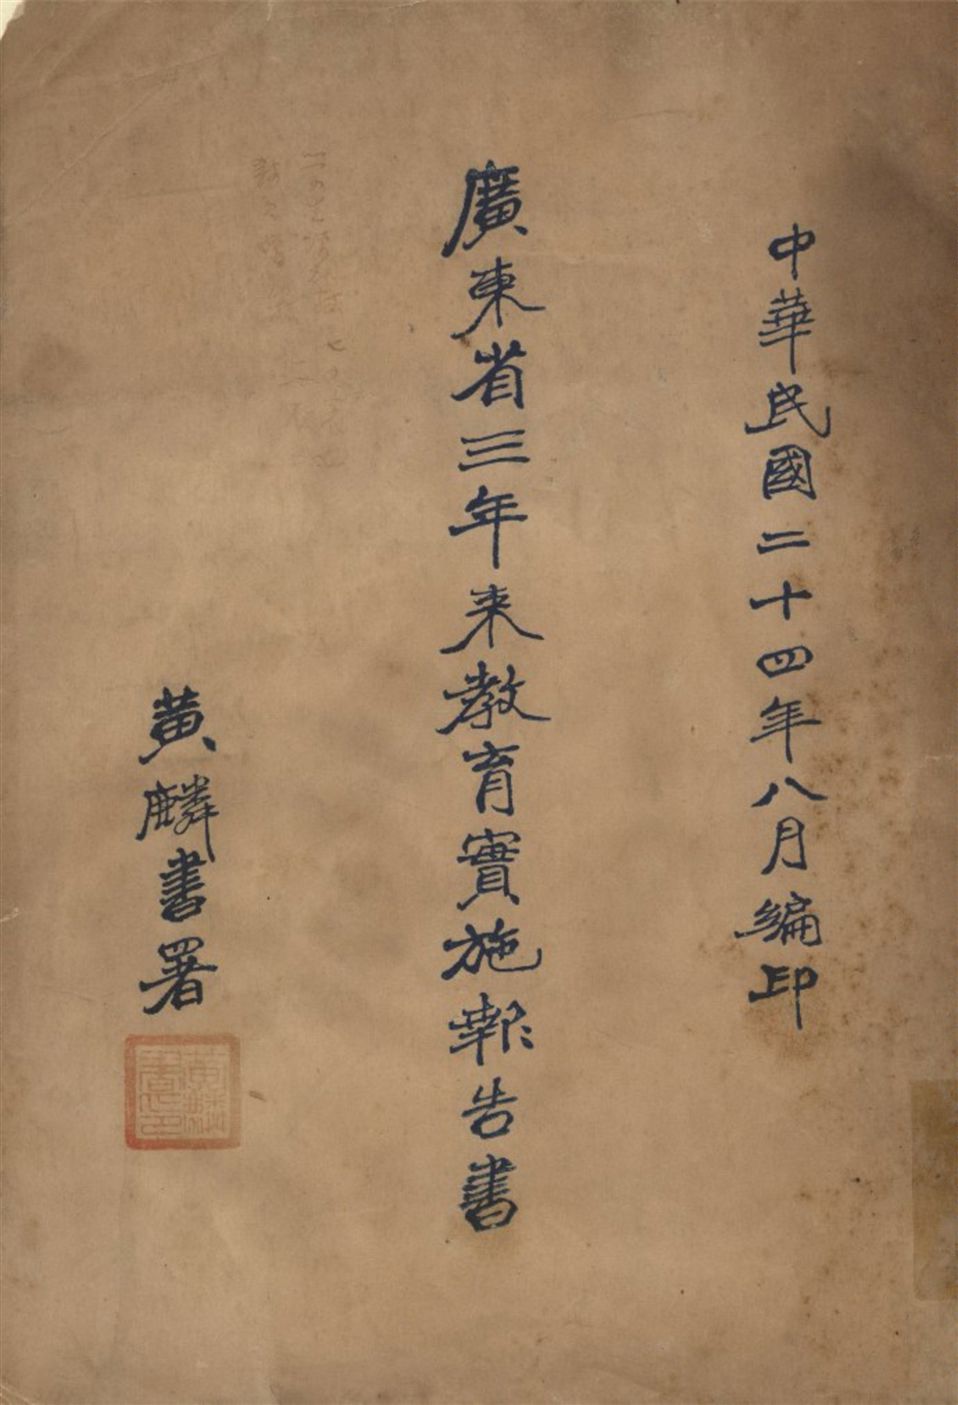 中華民國二十四年八月編印
廣東省三年来教育實施報告書
黃麟書署
黃麟書印